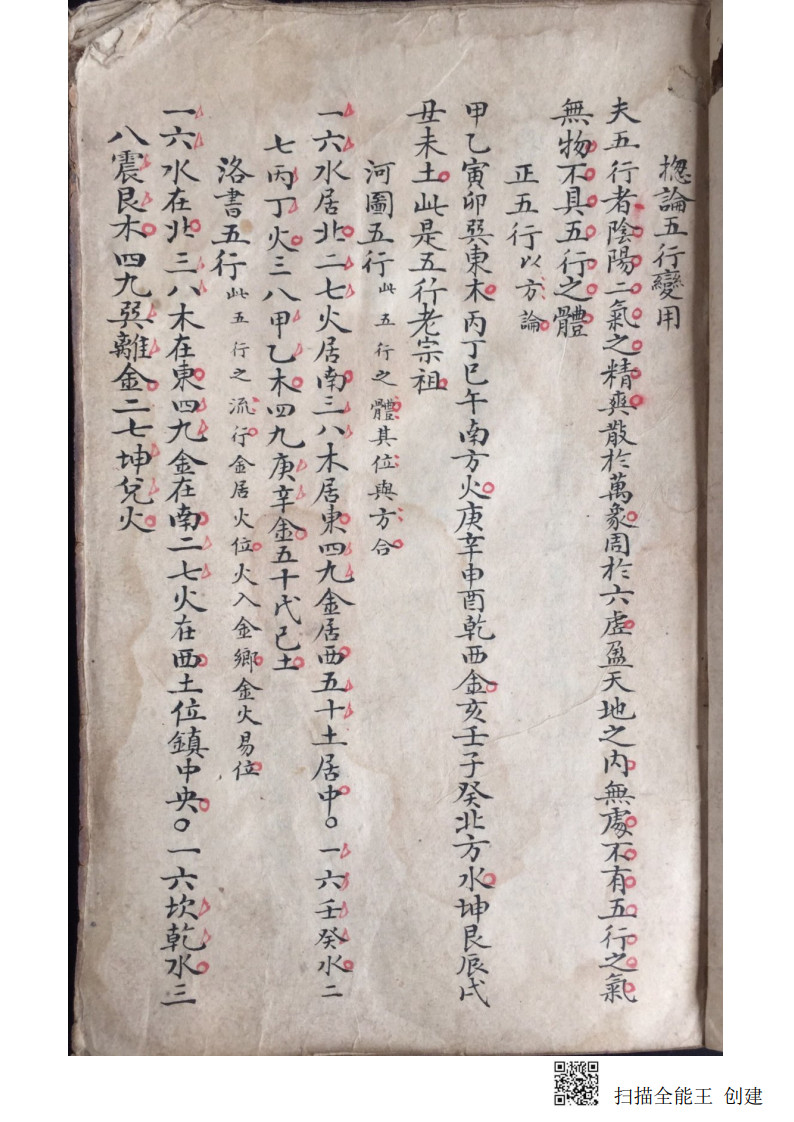 揔論五行變用
夫五行者陰陽二氣之精爽散於萬象周於六虛盈天地之內無處不有五行之氣
無物不具五行之體
正五行以方論
甲乙寅卯巽東木丙丁巳午南方火庚辛申酉乾西金亥壬子癸北方水坤艮辰戌
丑未土此是五行老宗祖
河圖五行此五行之體其位與方合
一六水居北二七火居南三八木居東四九金居西五十土居中○一六壬癸水二
七丙丁火三八甲乙木四九庚辛金五十戊己土
洛書五行此五行之流行金居火位火入金鄉金火易位
一六水在北三八木在東四九金在南二七火在西土位鎮中央○一六坎乾水三
八震艮木四九巽離金二七坤兌火
扫描全能王 创建